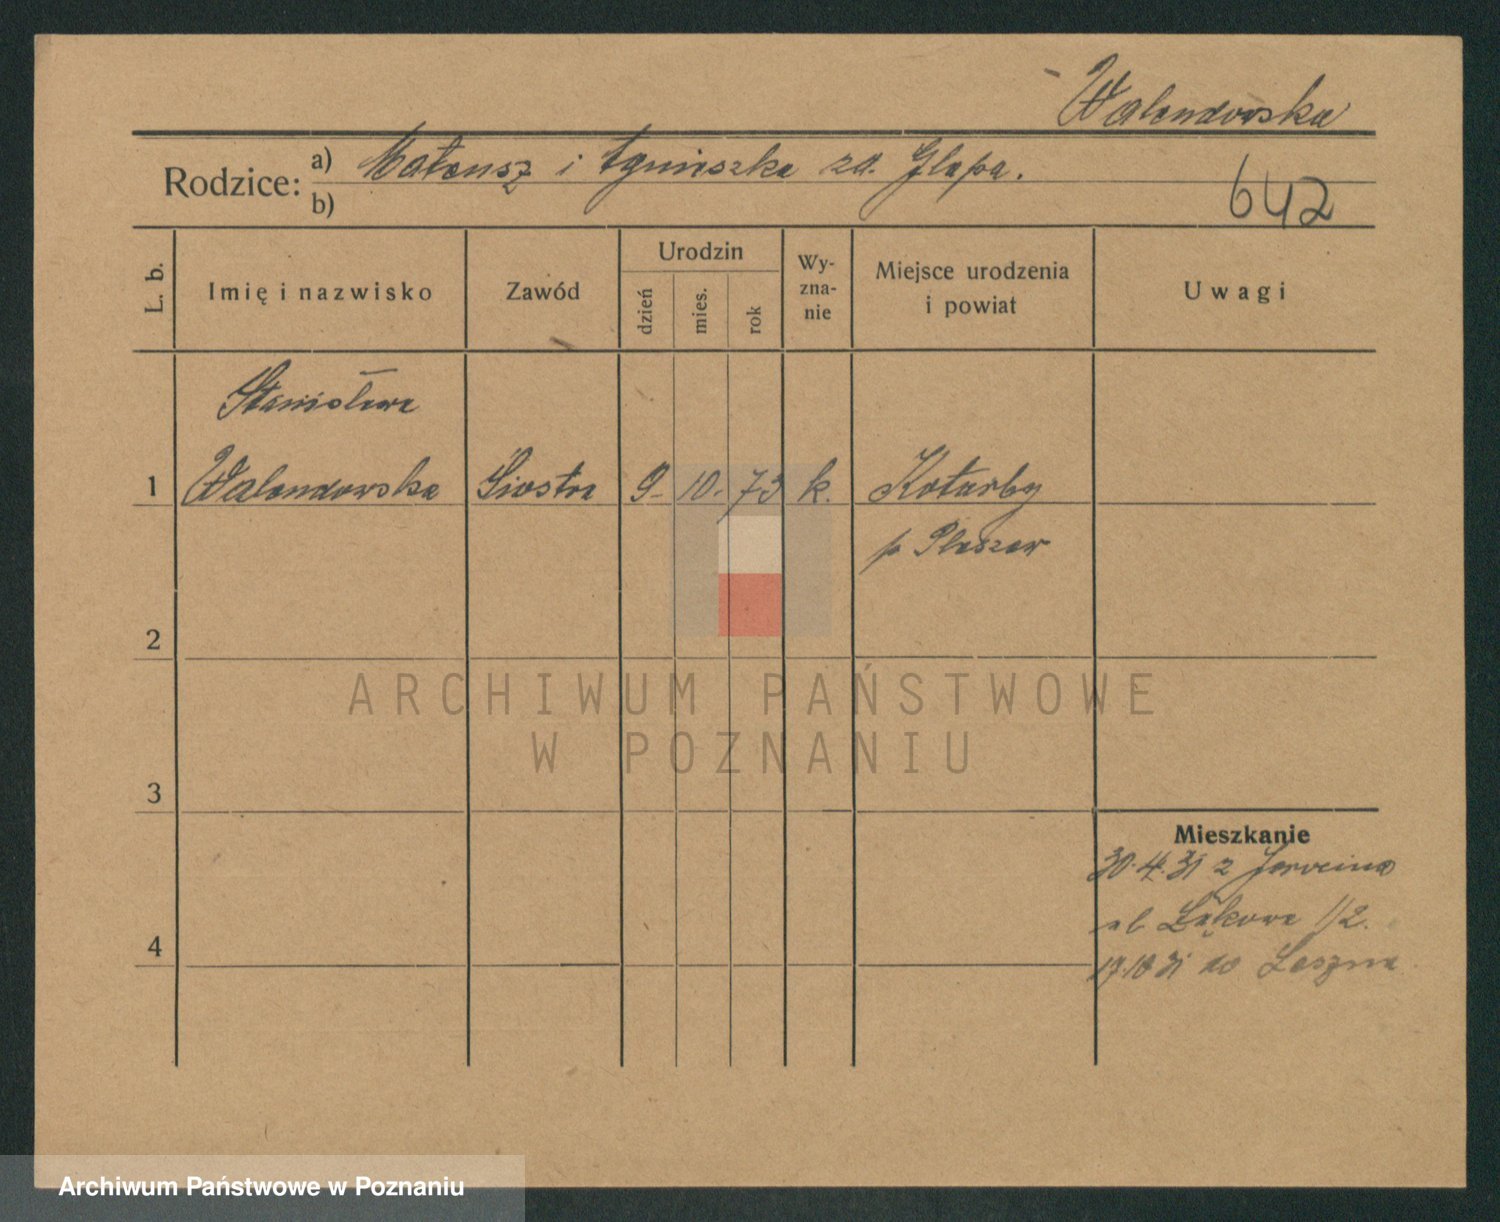 Walendowska
Rodzice: a) Mateusz i Agnieszka zd. Glapa.
b)
642
L. b.
Imię i nazwisko
Zawód
Urodzin
dzień
mies.
rok
Wy-
zna-
nie
Miejsce urodzenia
i powiat
Uwagi
Stanisława
1 Walendowska Siostra 9. 10. 73 k. Kotarby
p Pleszew
2
3
4
Mieszkanie
30.4.31 z Jarocina
ul. Łąkowa 1/2.
17.10 31 do Leszna
ARCHIWUM PAŃSTWOWE
W POZNANIU
Archiwum Państwowe w Poznaniu